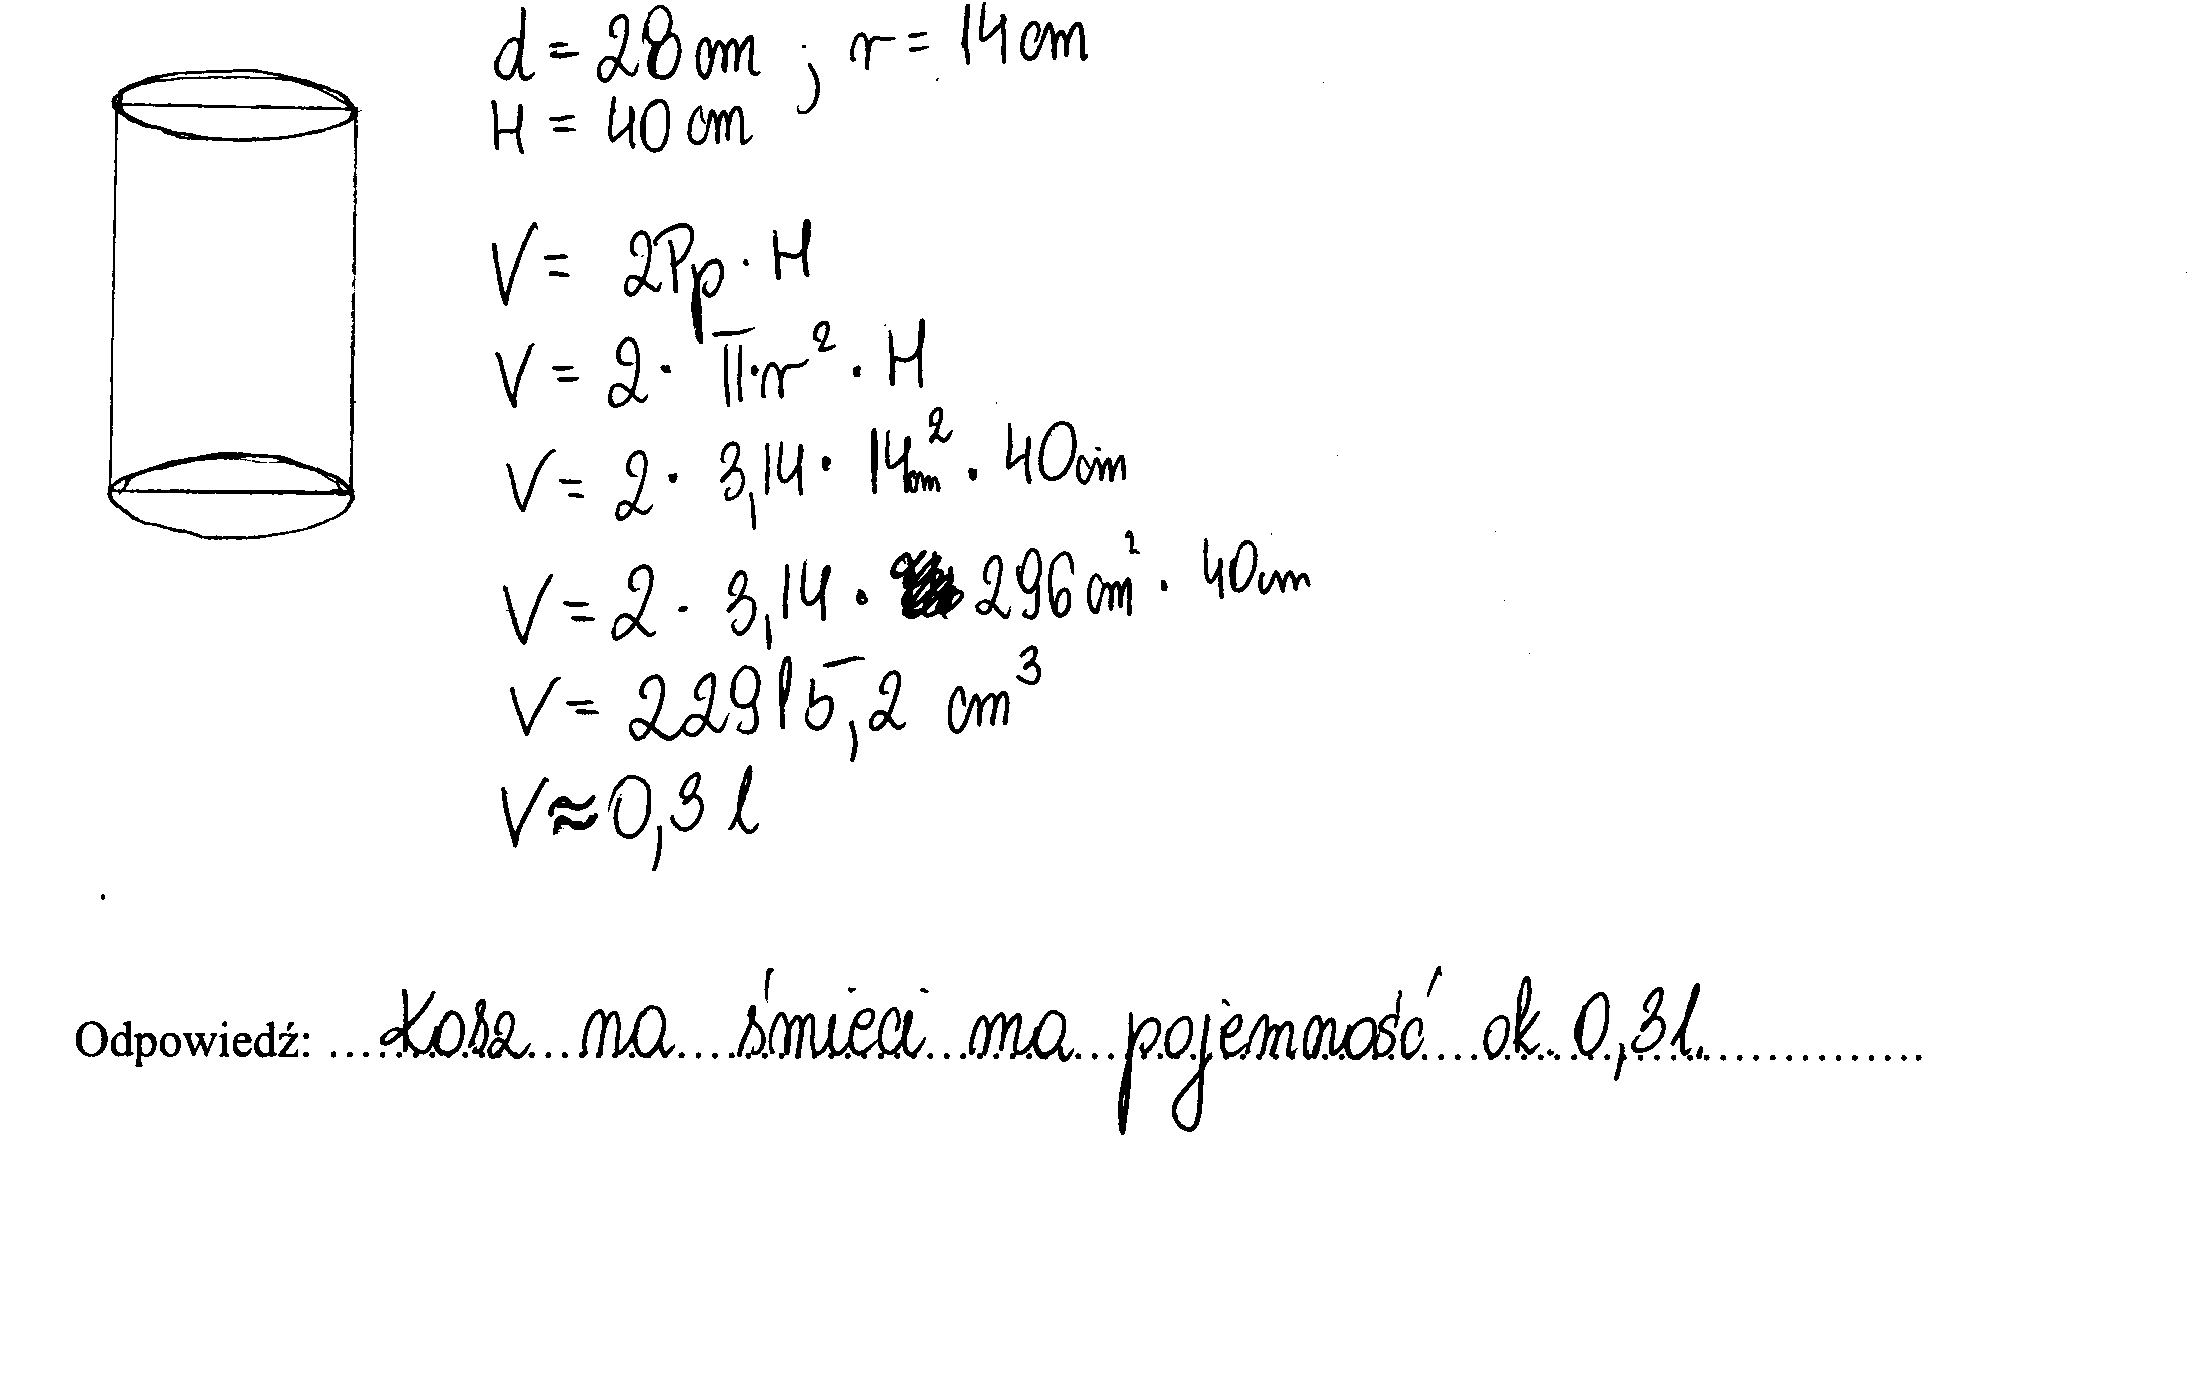 d = 28 cm ; r = 14 cm
H = 40 cm
V = 2Pp · H
V = 2 · π · r² · H
V = 2 · 3,14 · 14cm² · 40cm
V = 2 · 3,14 · 296 cm² · 40cm
V = 22915,2 cm³
V ≈ 0,3 l
Odpowiedź: Kosz na śmieci ma pojemność ok. 0,3 l.